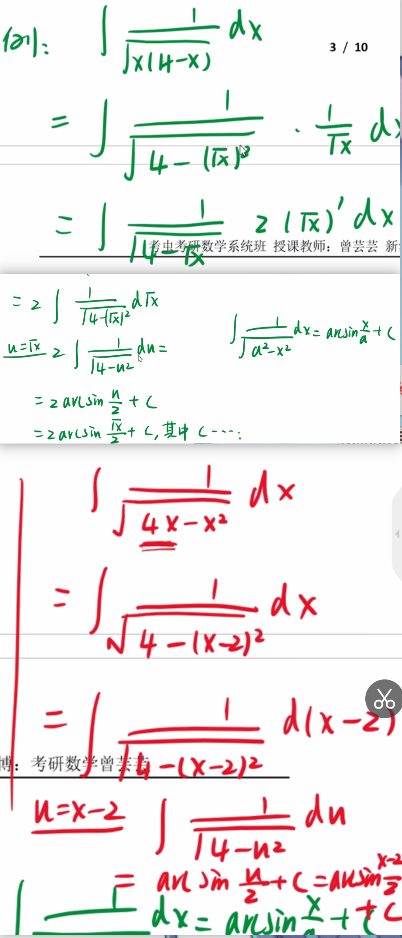 例: ∫ 1/√(x(4-x)) dx
3 / 10
= ∫ 1/√(4-(√x)²) · 1/√x dx
= ∫ 1/√(4-√x 2 (√x)' dx
考虫考研数学系统班 授课教师: 曾芸芸 新
= 2 ∫ 1/√(4-(√x)²) d√x
∫ 1/√(a²-x²) dx = arcsin x/a + C
u=√x 2 ∫ 1/√(4-u²) du =
= 2 arcsin u/2 + C
= 2 arcsin √x/2 + C, 其中 C ····;
∫ 1/√(4x-x²) dx
= ∫ 1/√(4-(x-2)²) dx
= ∫ 1/√(4-(x-2)²) d(x-2)
博: 考研数学曾芸芸
u=x-2 ∫ 1/√(4-u²) du
= arcsin u/2 + C = arcsin x-2/2 + C
∫ 1 dx = arcsin x/a + C